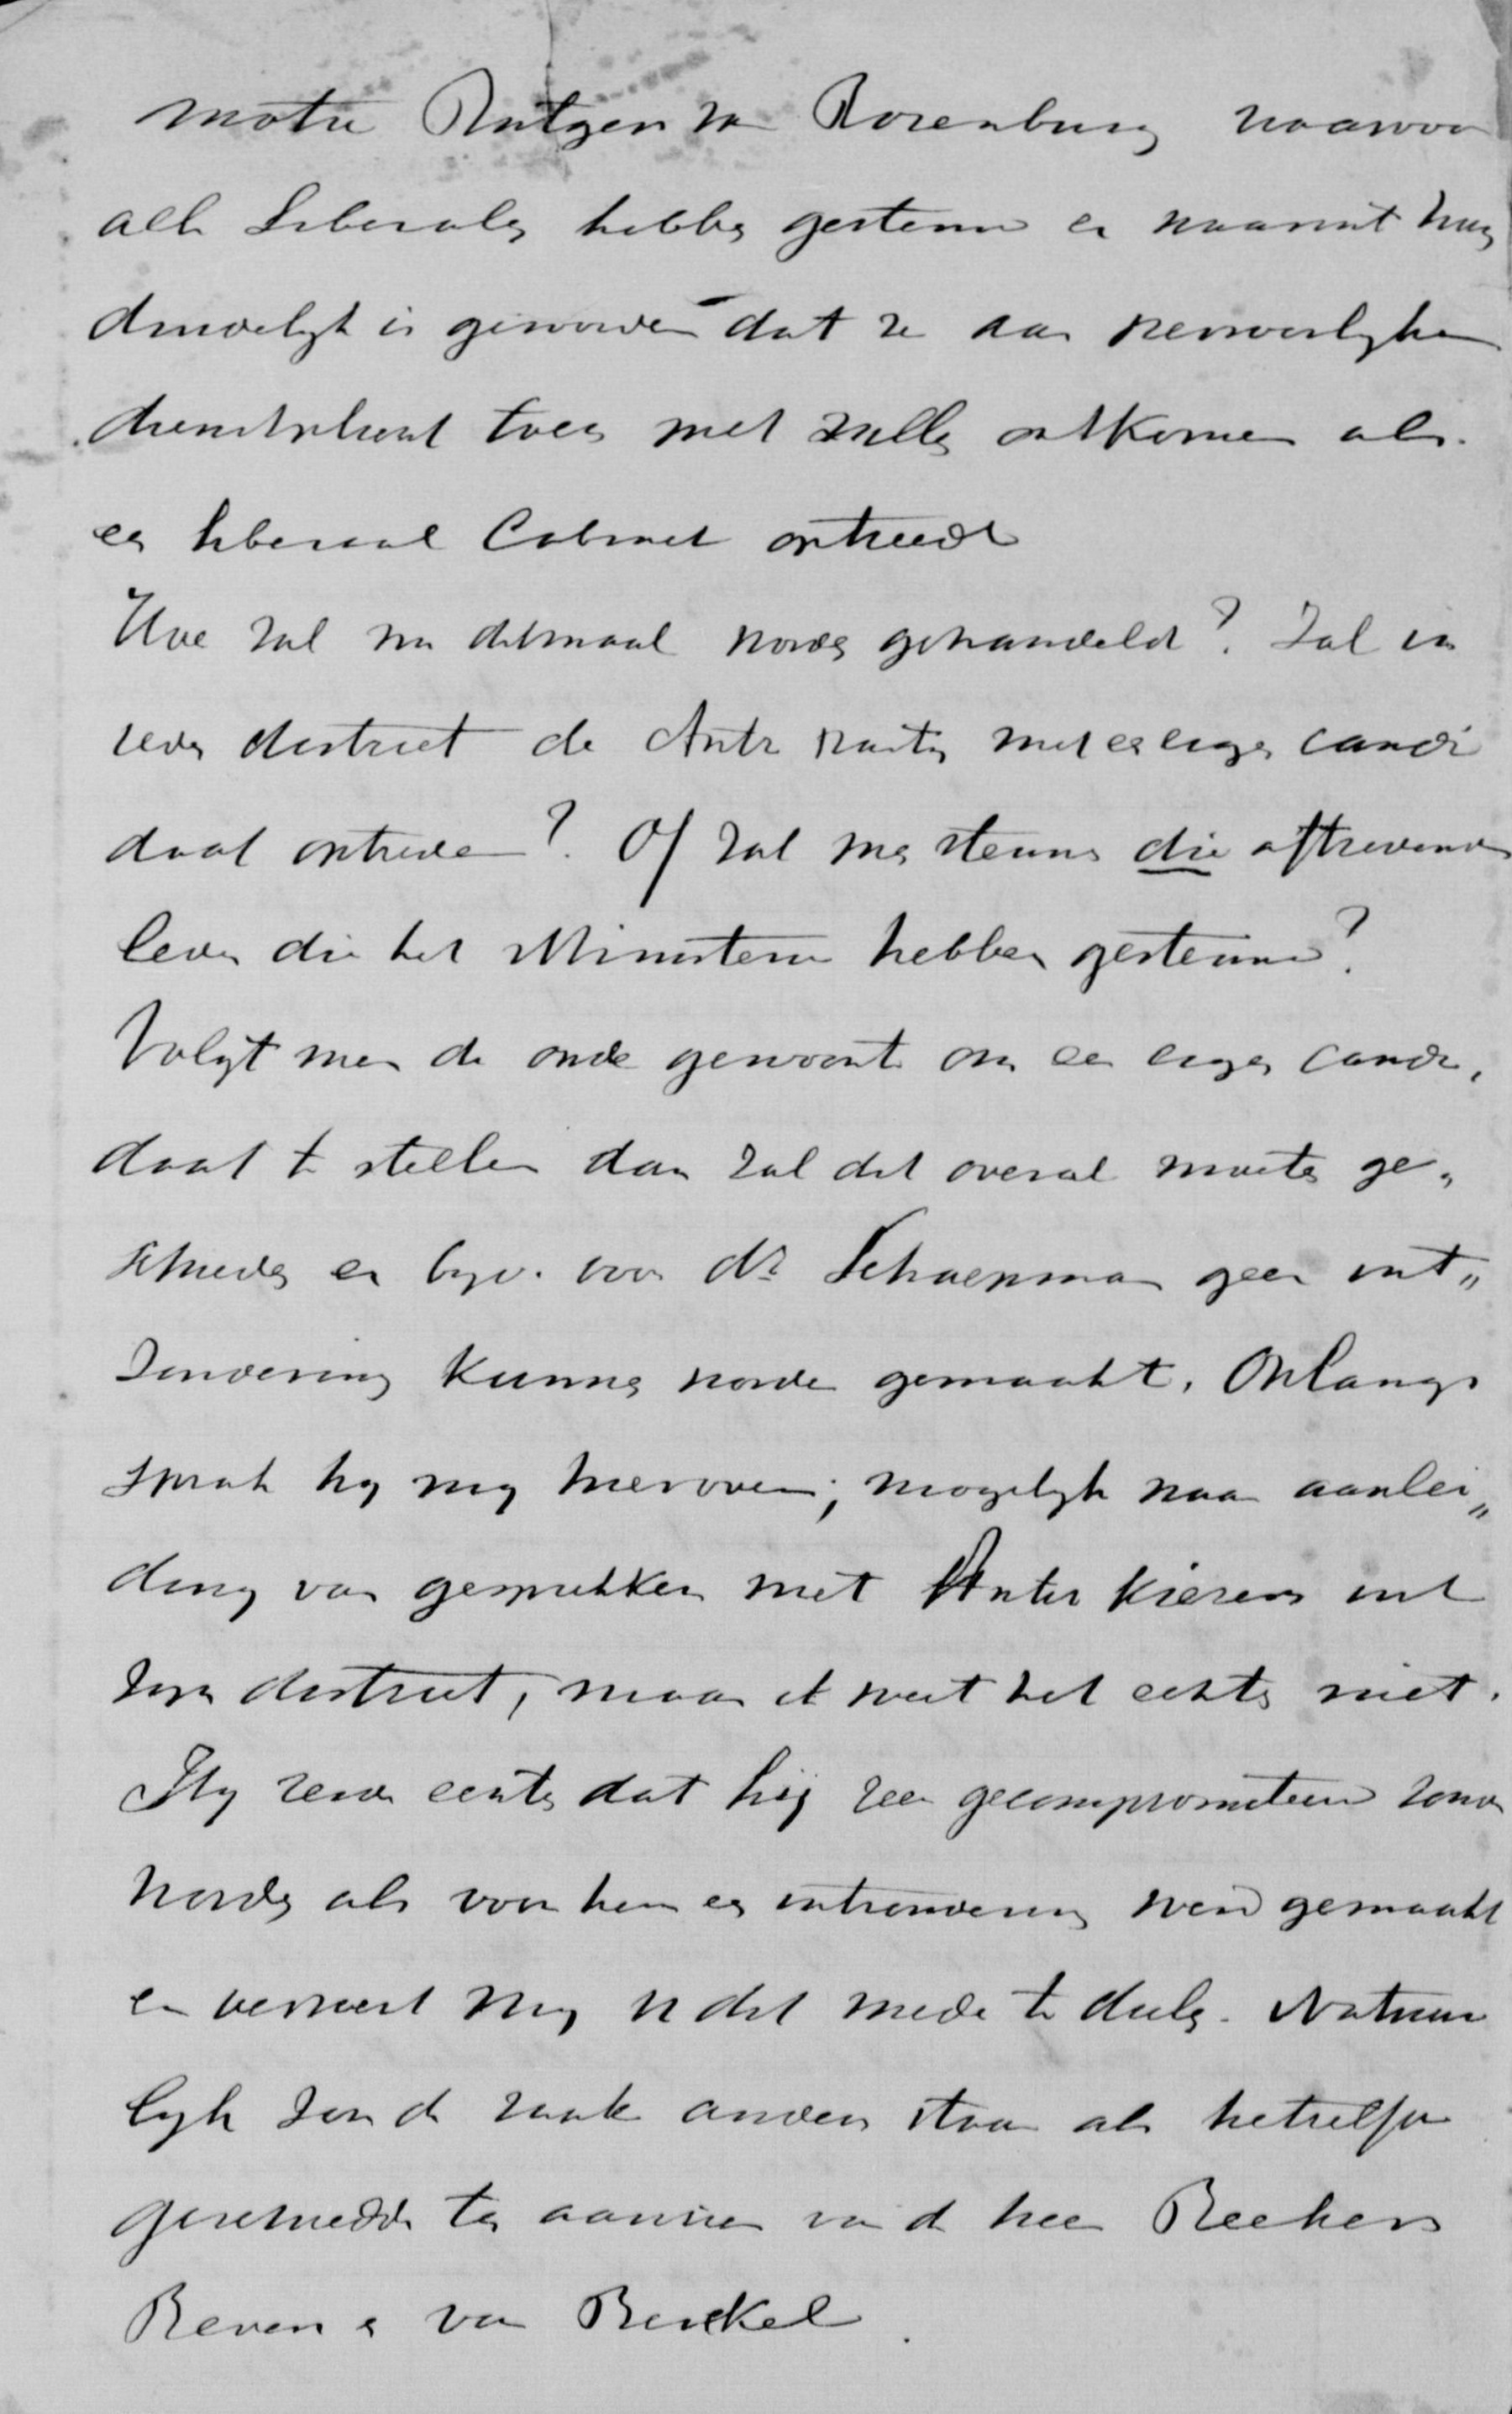 motie Rutgers v Rozenburg waarvoor
alle Liberalen hebben gestemd en waaruit hun
duidelijk is geworden dat ze aan persoonlijken
dienstplicht toch niet zullen ontkomen als
een liberaal Cabinet optreedt
Hoe zal nu ditmaal worden gehandeld? Zal in
ieder district de Antir partij met een eigen candi
daat optreden? Of zal men steunen die aftredende
leden die het Ministerie hebben gesteund?
Volgt men de oude gewoonte om een eigen candi,
daat te stellen dan zal dit overal moeten ge„
schieden en bijv. voor dr Schaepman geen uit„
zondering kunnen worden gemaakt. Onlangs
sprak hij mij hierover; mogelijk naar aanlei„
ding van gesprekken met Antir kiezers uit
zijn district, maar ik weet het echter niet.
Hij zeide echter dat hij zeer gecompromitteerd zoude
worden als voor hem een uitzondering werd gemaakt
en verzocht mij U dit mede te deelen. Natuur
lijk zou de zaak anders staan als hetzelfde
geschiedde ten aanzien van de heer Reekers
Bevers en van Berckel.